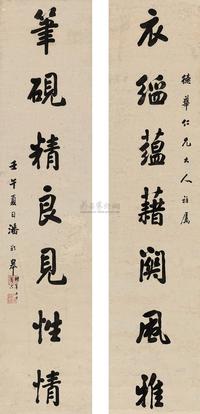 德華仁兄大人雅屬
衣蘊藉關風雅
筆硯精良見性情
壬午夏日潘齡皋